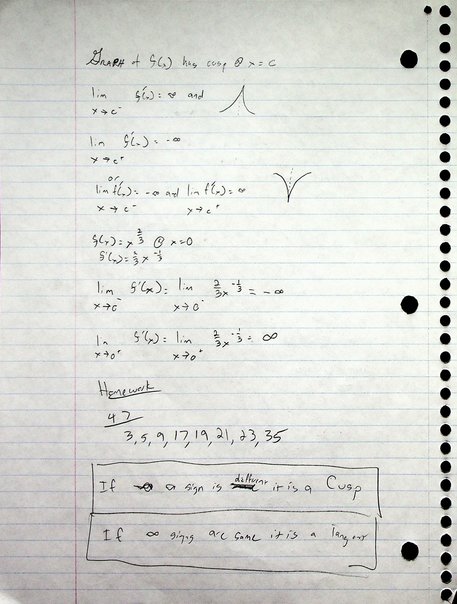 GRAPH of f(x) has cusp @ x = c
lim f'(x) = ∞ and
x → c⁻
lim f'(x) = -∞
x → c⁺
or
lim f'(x) = -∞ and lim f'(x) = ∞
x → c⁻ x → c⁺
f(x) = x^2/3 @ x = 0
f'(x) = 2/3 x^-1/3
lim f'(x) = lim 2/3 x^-1/3 = -∞
x → 0⁻ x → 0⁻
lim f'(x) = lim 2/3 x^-1/3 = ∞
x → 0⁺ x → 0⁺
Homework
4.7
3, 5, 9, 17, 19, 21, 23, 35
If ∞ sign is different it is a Cusp
If ∞ signs are same it is a Tangent